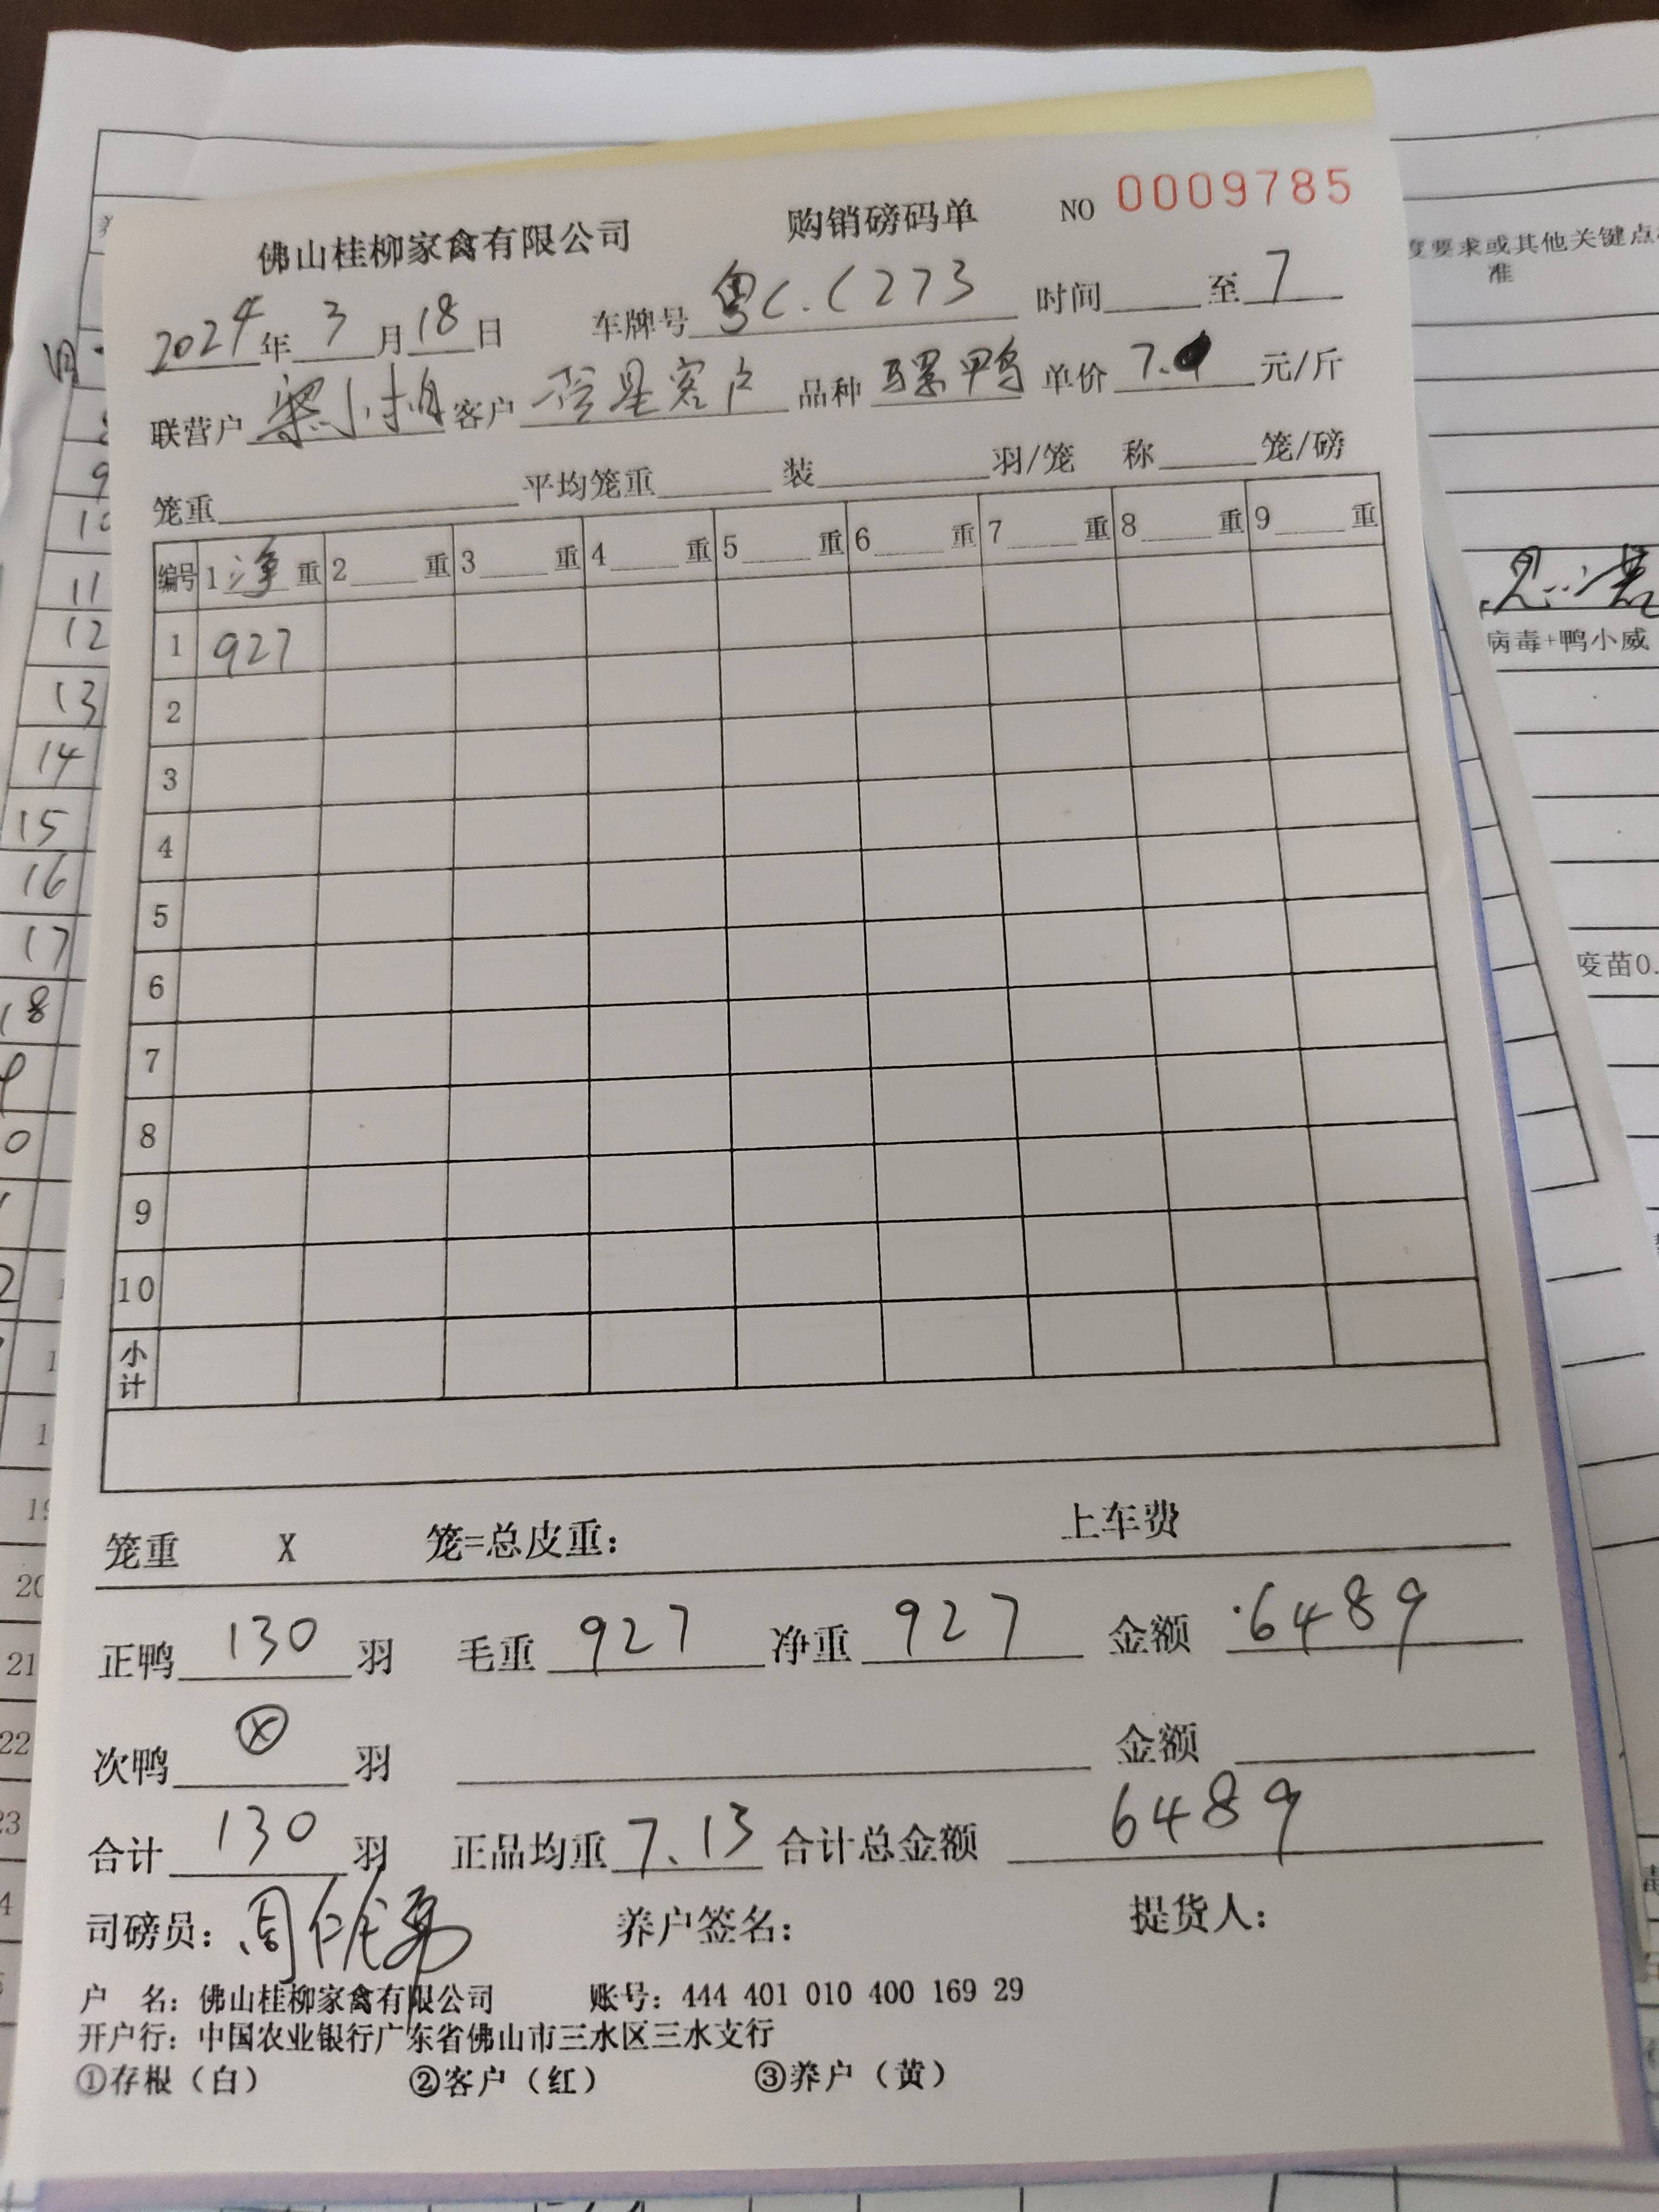 佛山桂柳家禽有限公司 购销磅码单 NO 0009785
2024年 3 月 18 日 车牌号 粤C.C273 时间 至 7
联营户 梁小柏 客户 零星客户 品种 骡鸭 单价 7. 元/斤
笼重 平均笼重 装 羽/笼 称 笼/磅
编号 1 净 重 2 重 3 重 4 重 5 重 6 重 7 重 8 重 9 重
1 927
2
3
4
5
6
7
8
9
10
小计
笼重 X 笼=总皮重: 上车费
正鸭 130 羽 毛重 927 净重 927 金额 6489
次鸭 ⊗ 羽 金额
合计 130 羽 正品均重 7.13 合计总金额 6489
司磅员: 周 养户签名: 提货人:
户 名: 佛山桂柳家禽有限公司 账号: 444 401 010 400 169 29
开户行: 中国农业银行广东省佛山市三水区三水支行
①存根（白） ②客户（红） ③养户（黄）
度要求或其他关键点
准
病毒+鸭小威
疫苗0.
9
10
11
12
13
14
15
16
17
18
20
21
22